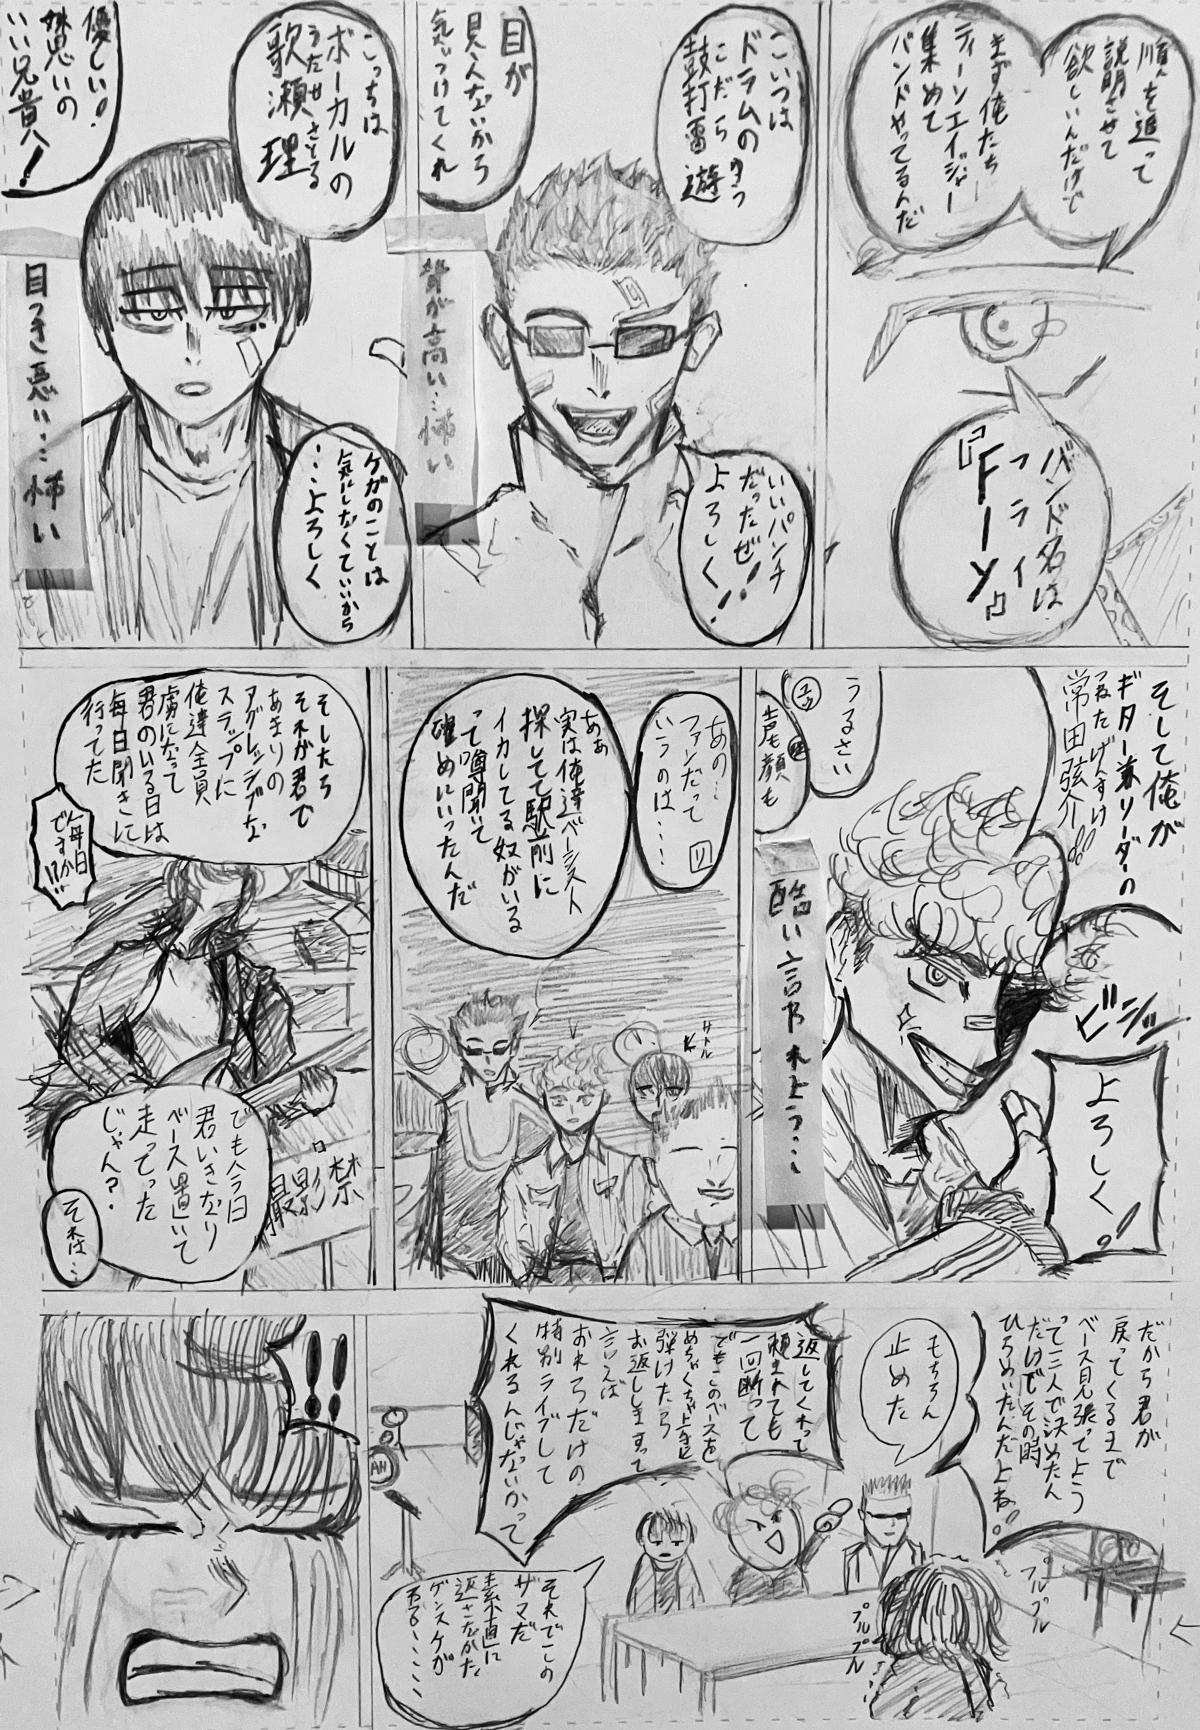 順を追って
説明させて
欲しいんだけど
まず俺たち
ティーンエイジャー
集めて
バンドやってるんだ
バンド名は
フライ
『Fーy』
こいつは
ドラムの
こだら
鼓打雷 遊
目が
見えないから
気いつけてくれ
背が高い…怖い
いいパンチ
だったぜ!
よろしく!
こっちは
ボーカルの
うたせ さとる
歌瀬 理
優しい!
妹思いの
いい兄貴!
目つき悪い…怖い
ケガのことは
気にしなくていいから
…よろしく
そして俺が
ギター兼リーダーの
つねた げんすけ
常田弦介!!
ビシッ
よろしく。
うるさい
声も顔も
酷い言われよう…
あの…
ファンだって
いうのは…
あぁ
実は俺達ベース
探してて駅前に
イカしてる奴がいる
って噂聞いて
確めにいったんだ
サトル
そしたら
それが君で
あまりの
アグレッシブな
スラップに
俺達全員
虜になって
君のいる日は
毎日聞きに
行ってた
毎日
ですか!?
でも今日
君いきなり
ベース置いて
走ってった
じゃん?
それは…
撮影禁
だから君が
戻ってくるまで
ベース見張ってよう
って三人で決めたん
だけど、その時
ひらめいたんだよね!
もちろん
止めた
返してくれって
頼まれても
一回断って
でもこのベースを
めちゃくちゃ上手に
弾けたら
お返ししますって
言えば
おれらだけの
特別ライブして
くれるんじゃないかって
それでこの
ザマだ
素直に
返さなかった
ゲンスケが
プルプル
プルプル
!!